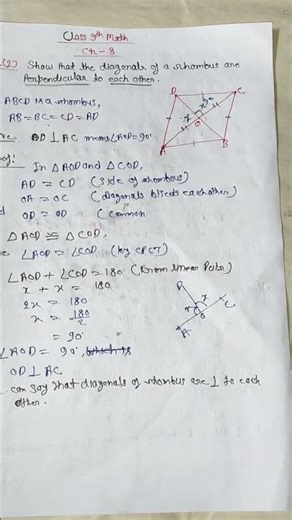 Class 9th Math
Ch - 8
(2) Show that the diagonals of a rhombus are
Perpendicular to each other.
ABCD is a rhombus,
AB = BC = CD = AD
OD ⊥ AC means ∠AOD = 90°
In △AOD and △COD,
AD = CD (Side of rhombus)
OA = OC (diagonals bisects each other)
OD = OD (common
△AOD ≅ △COD,
∠AOD = ∠COD (by CPCT)
∠AOD + ∠COD = 180 (From linear Pair)
x + x = 180
2x = 180
x = 180/2
= 90°
∠AOD = 90°,
OD ⊥ AC
can say that diagonals of rhombus are ⊥ to each
other.
D
C
A
B
O
x
D
x
x
C
O
A